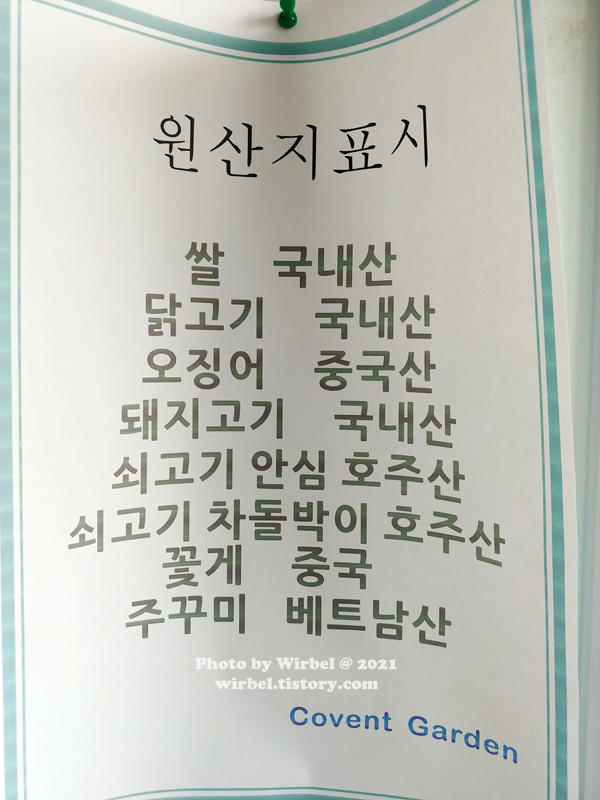 원산지표시
쌀 국내산
닭고기 국내산
오징어 중국산
돼지고기 국내산
쇠고기 안심 호주산
쇠고기 차돌박이 호주산
꽃게 중국
주꾸미 베트남산
Photo by Wirbel @ 2021
wirbel.tistory.com
Covent Garden